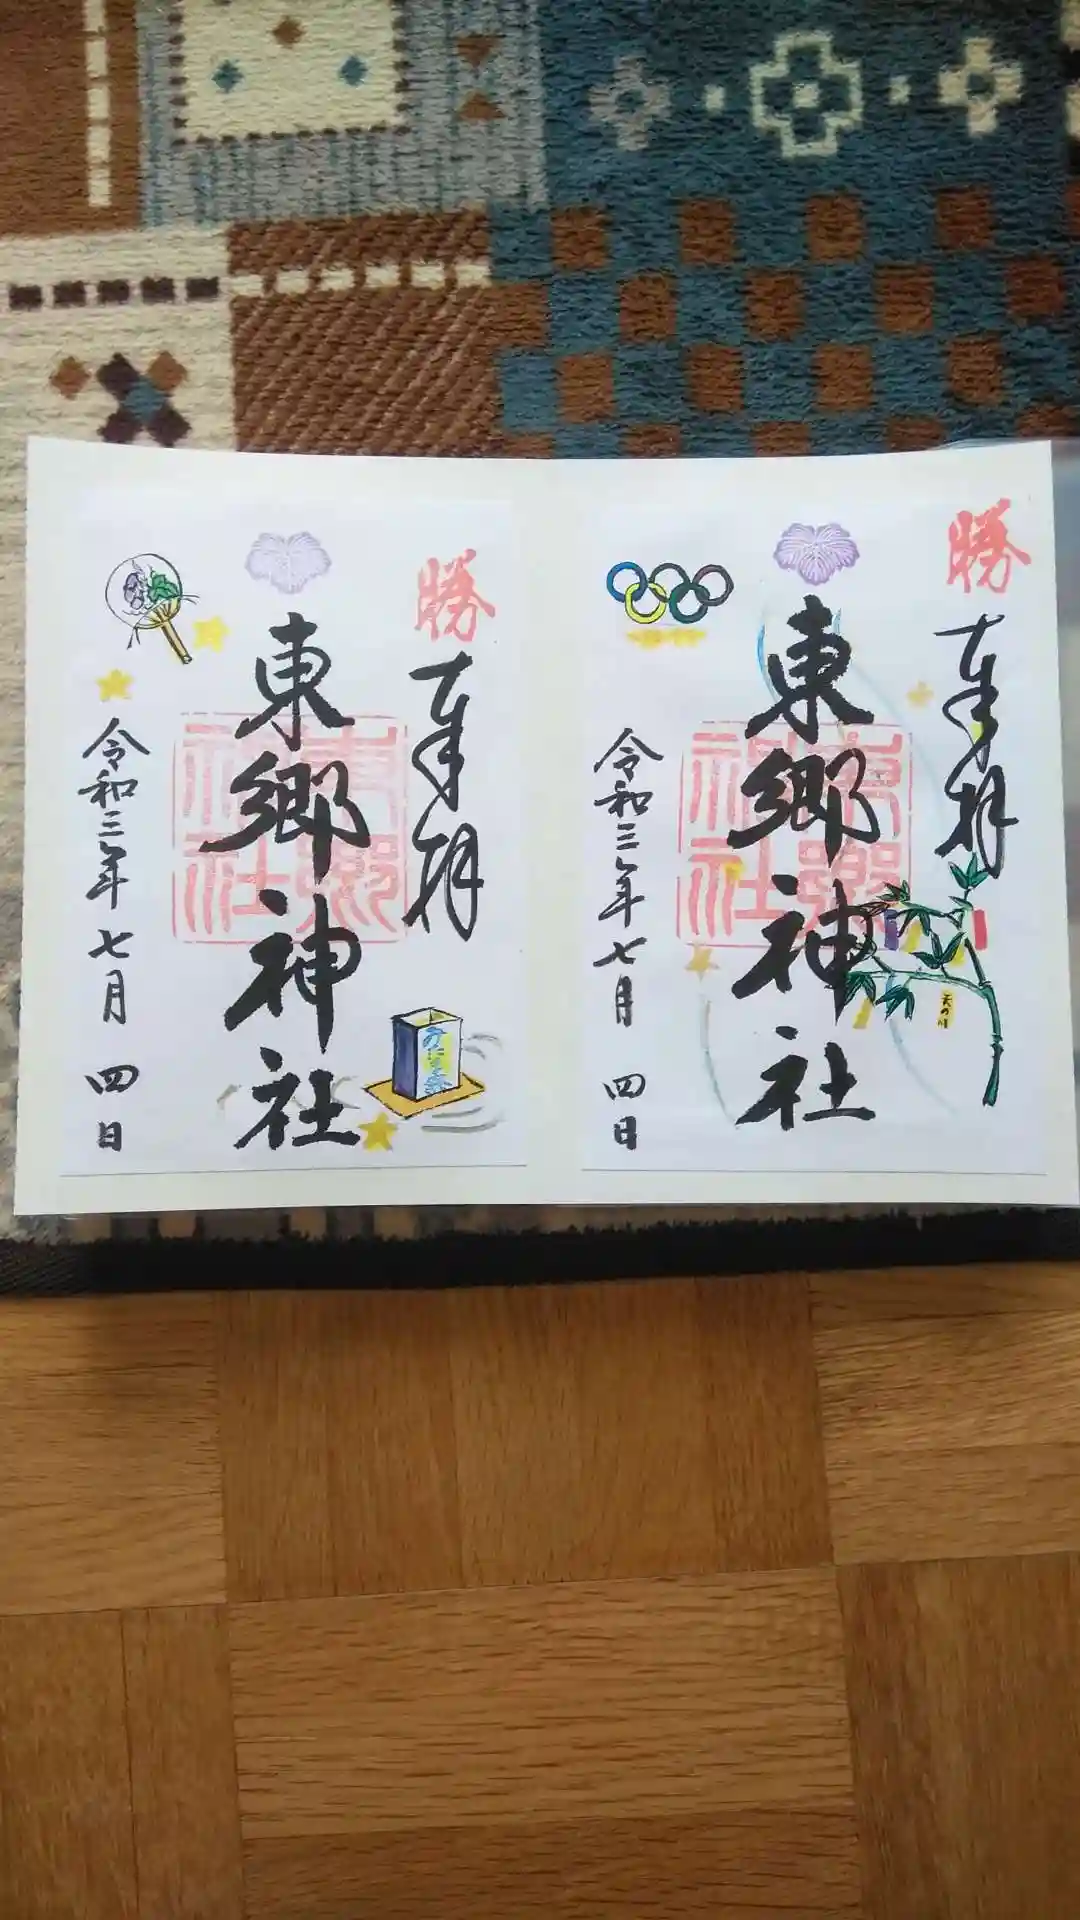 勝
奉拝
東郷神社
令和三年七月四日
みたま祭
東郷神社
勝
奉拝
東郷神社
令和三年七月四日
天の川
東郷神社